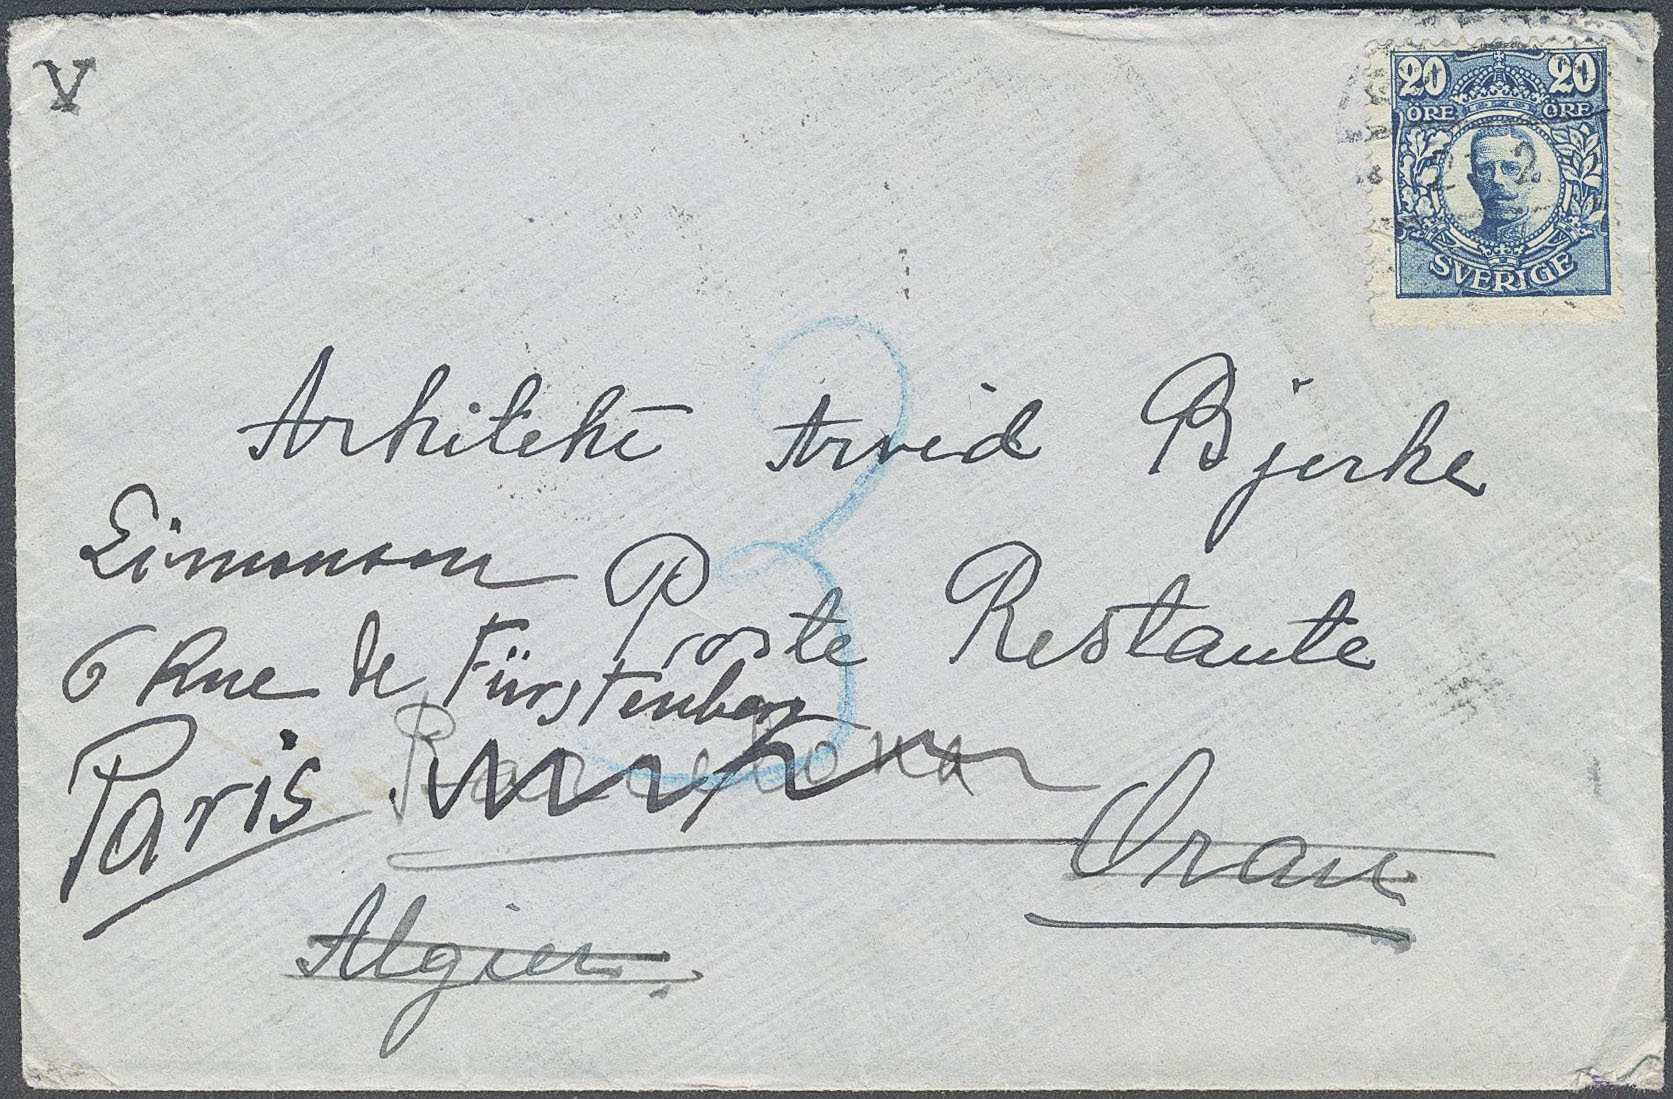 V
20 20
ÖRE ÖRE
SVERIGE
3
Arkitekt Arvid Bjerke
Poste Restante
Simonson
6 Rue de Fürstenberg
Paris
Barcelona
Oran
Algier